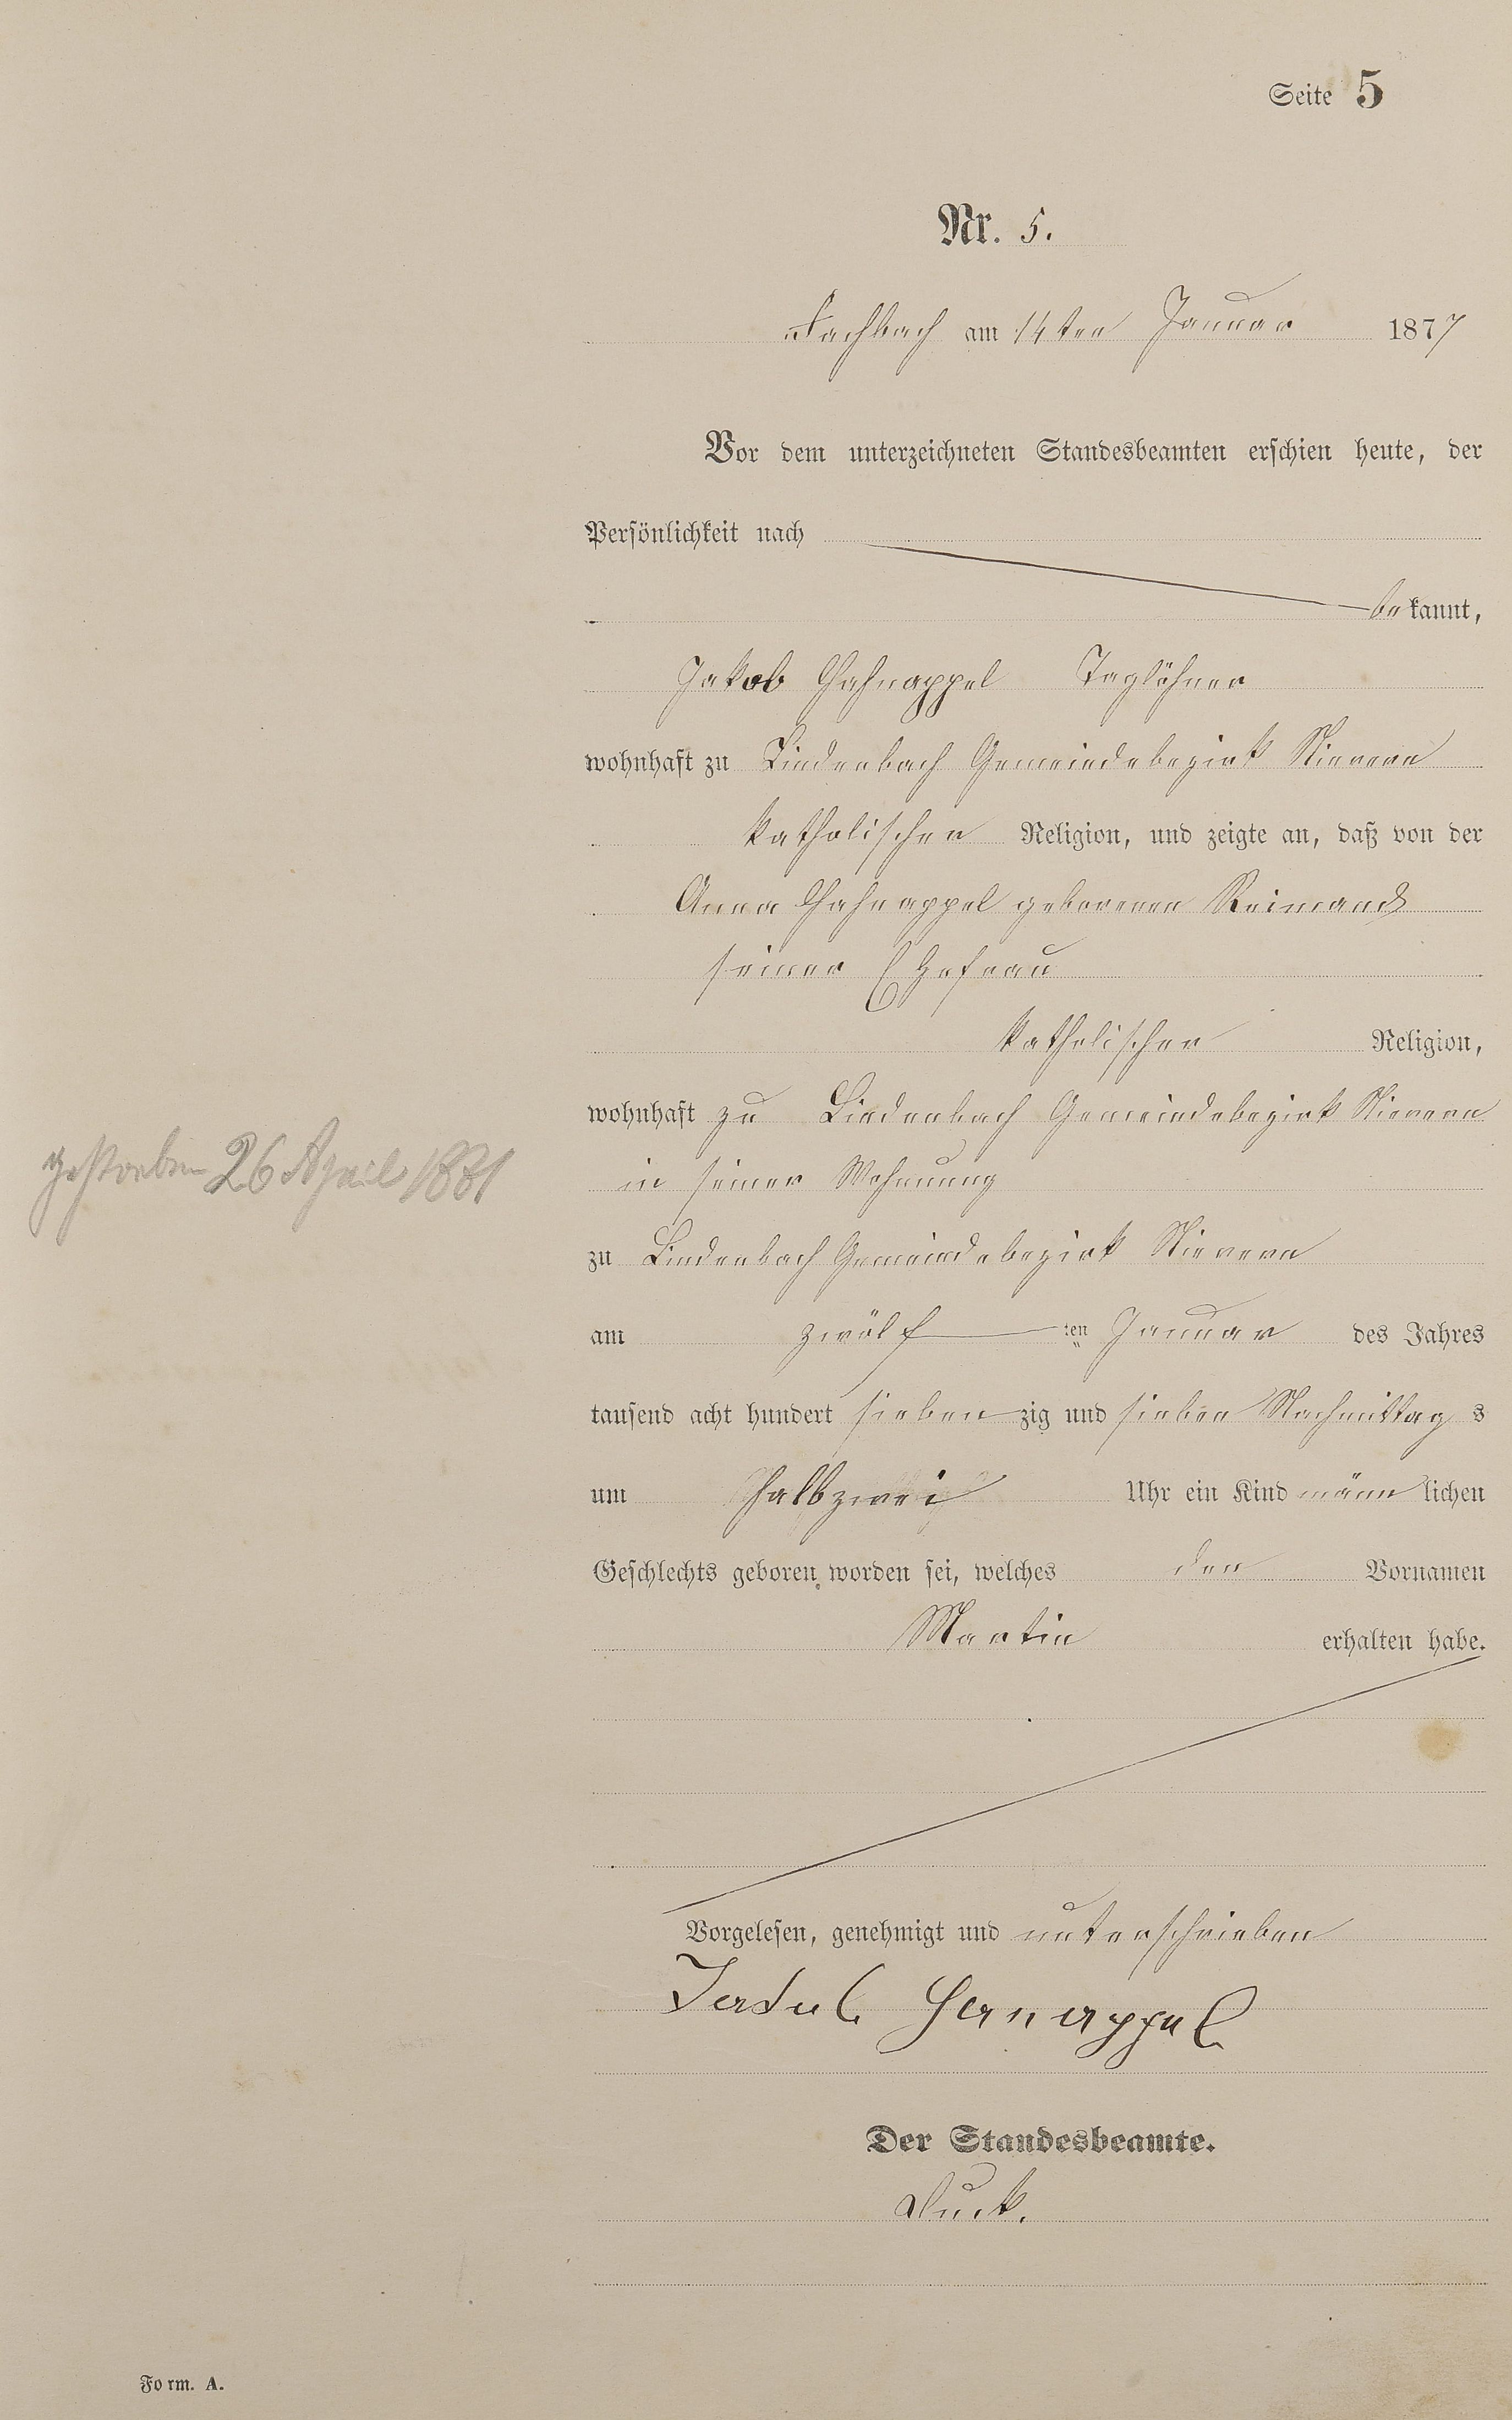 Seite 5
Nr. 5.
Fachbach am 14ten Januar 1877
Vor dem unterzeichneten Standesbeamten erschien heute, der
Persönlichkeit nach
bekannt,
Jakob Hahnappel Taglöhner
wohnhaft zu Lindenbach Gemeindebezirk Nievern
katholischen Religion, und zeigte an, daß von der
Anna Hahnappel geborenen Reimand
seiner Ehefrau
katholischer Religion,
wohnhaft zu Lindenbach Gemeindebezirk Nievern
gestorben 26 April 1881
in seiner Wohnung
zu Lindenbach Gemeindebezirk Nievern
am zwölf ten Januar des Jahres
tausend acht hundert siebenzig und sieben Nachmittags
um halbzwei Uhr ein Kind männlichen
Geschlechts geboren worden sei, welches den Vornamen
Martin erhalten habe.
Vorgelesen, genehmigt und unterschrieben
Jakob Hanappel
Der Standesbeamte.
Form. A.